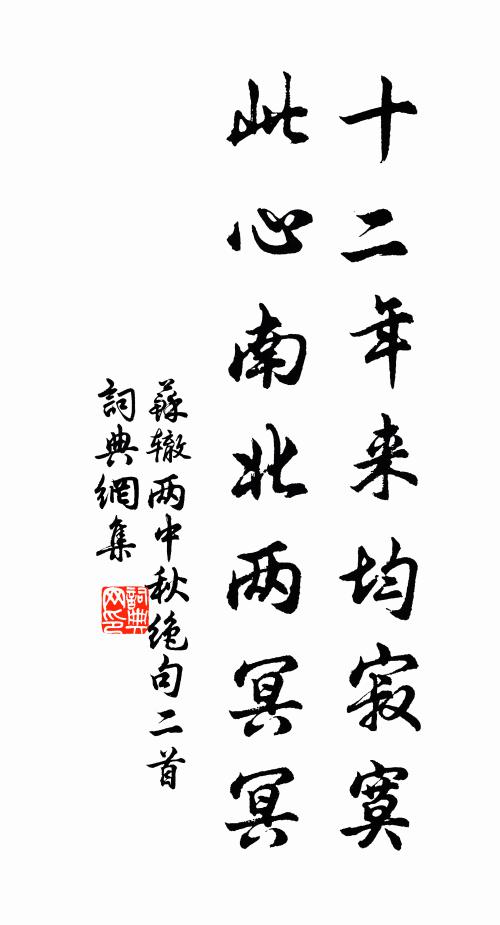 十二年来均寂寞
此心南北两冥冥
蘇辙两中秋绝句二首
詞典網集
詞典网印